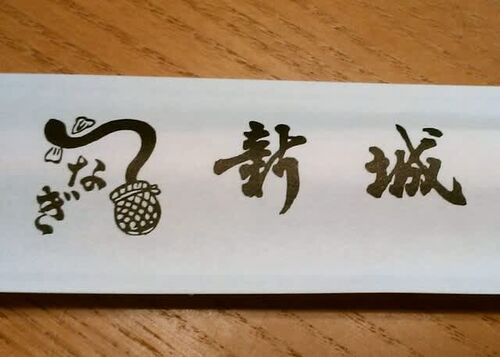 うなぎ
新城